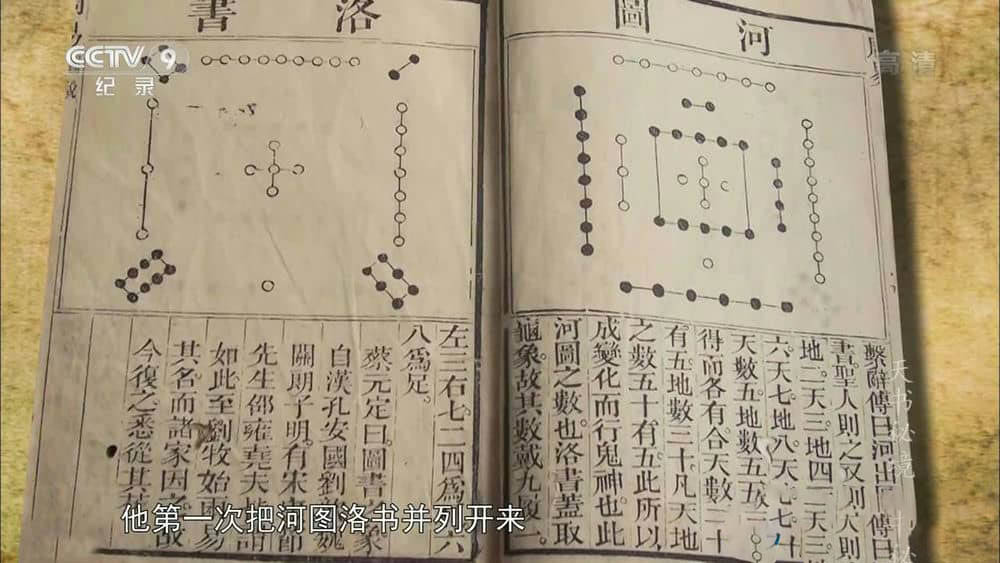 CCTV 9
纪录
高清
河圖
繫辭傳曰河出
書聖人則之又
地二天三地四
六天七地八天
天數五地數五五
得而各有合天數二十
有五地數三十凡天地
之數五十有五此所以
成變化而行鬼神也此
河圖之數也洛書蓋取
龜象故其數戴九履一
洛書
左三右七二四爲
六
八爲足
蔡元定曰圖書
象
自漢孔安國劉
魏
關朗子明有宋康節
先生邵雍堯夫皆謂
如此至劉牧始兩易
其名而諸家因之故
今復之悉從其
他第一次把河图洛书并列开来
天书秘境